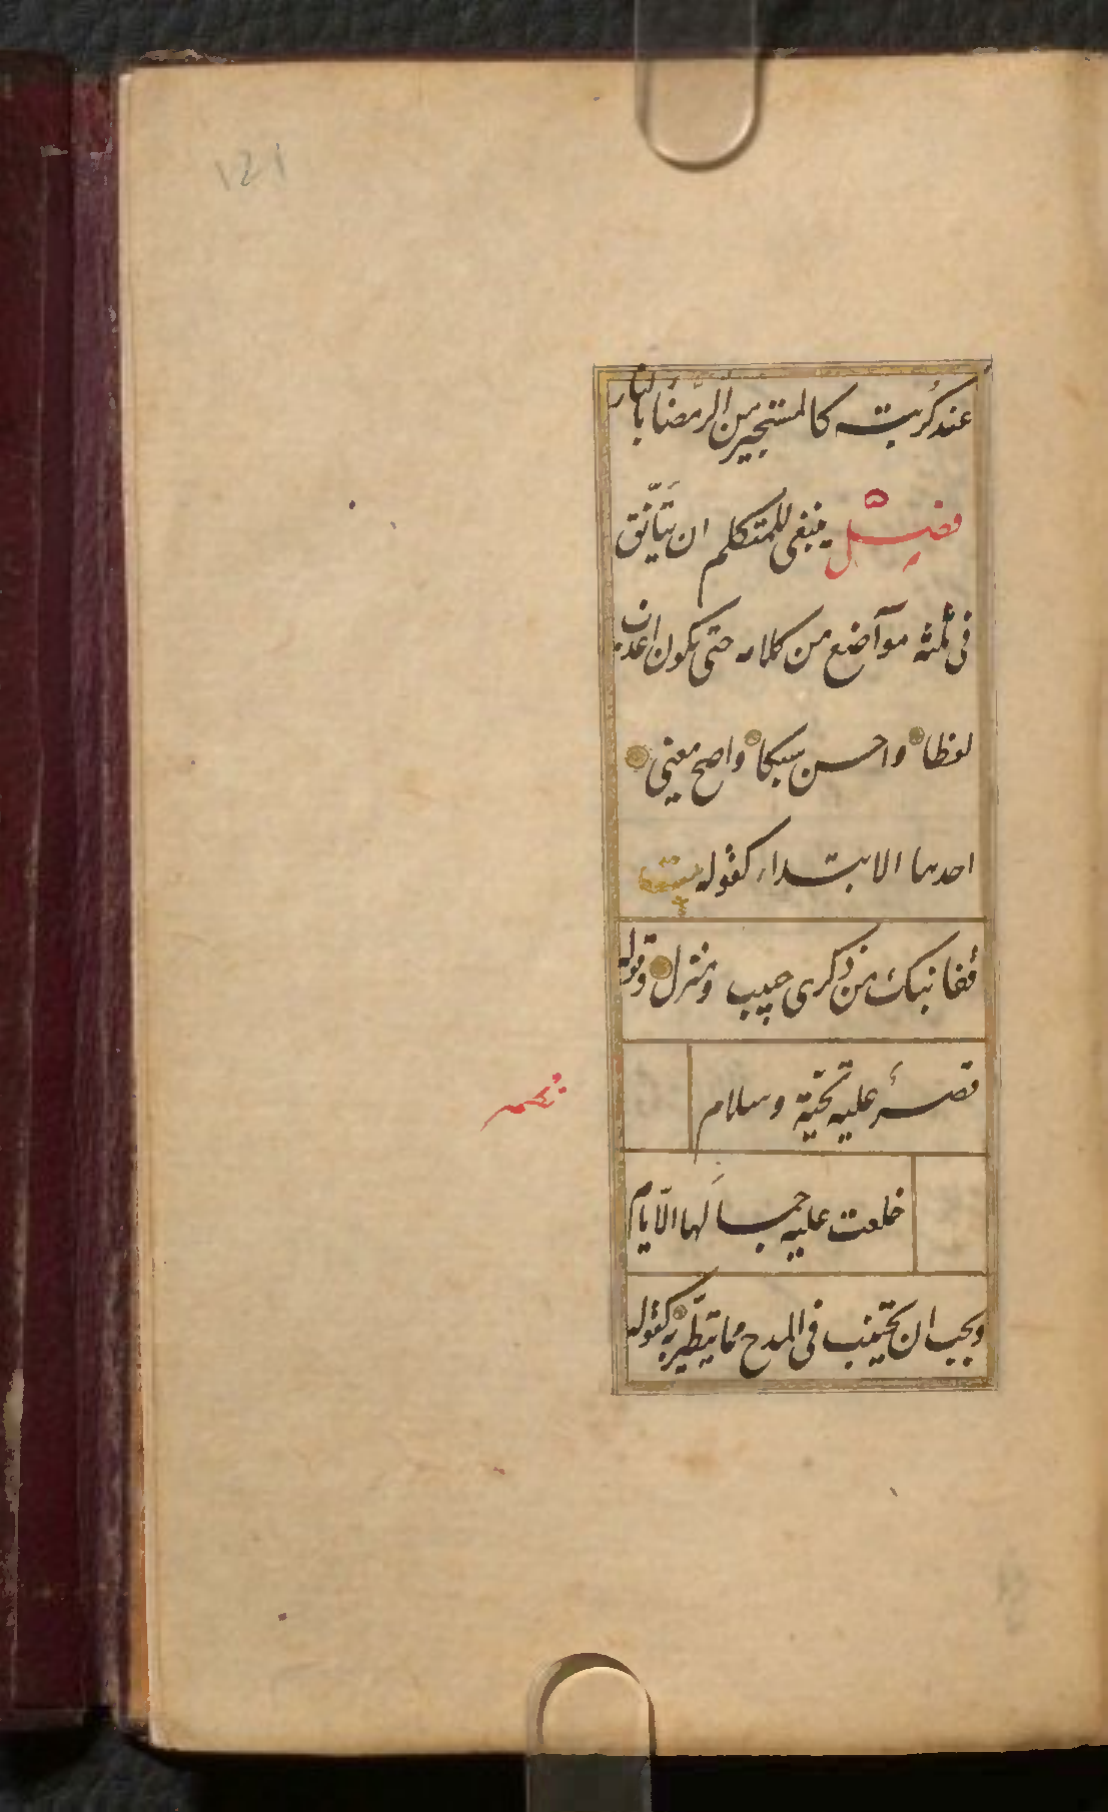 ١٤١
عند كُربته كالمستجير من الرمضاء بالنار
فصل ينبغى للمتكلم ان يَتَأَنّق
فى ثلثة مواضع من كلامه حتى يكون اعذب
لفظا واحسن سبكا واصح معنى
احدها الابتداء كقوله بيت
قفا نبك من ذكرى حبيب ومنزل وقوله
قصرٌ عليه تحيّة وسلام
خلعت عليه جمالَها الايام
ويجب ان يجتنب فى المدح مما يتطيّر به كقوله